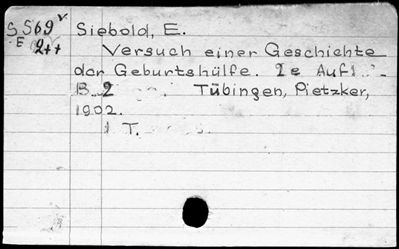 S 569 Siebold, E.
E 2++ Versuch einer Geschichte
der Geburtshülfe. 2e Aufl.
B. 2 Tübingen, Pietzker,
1902.
1 T.